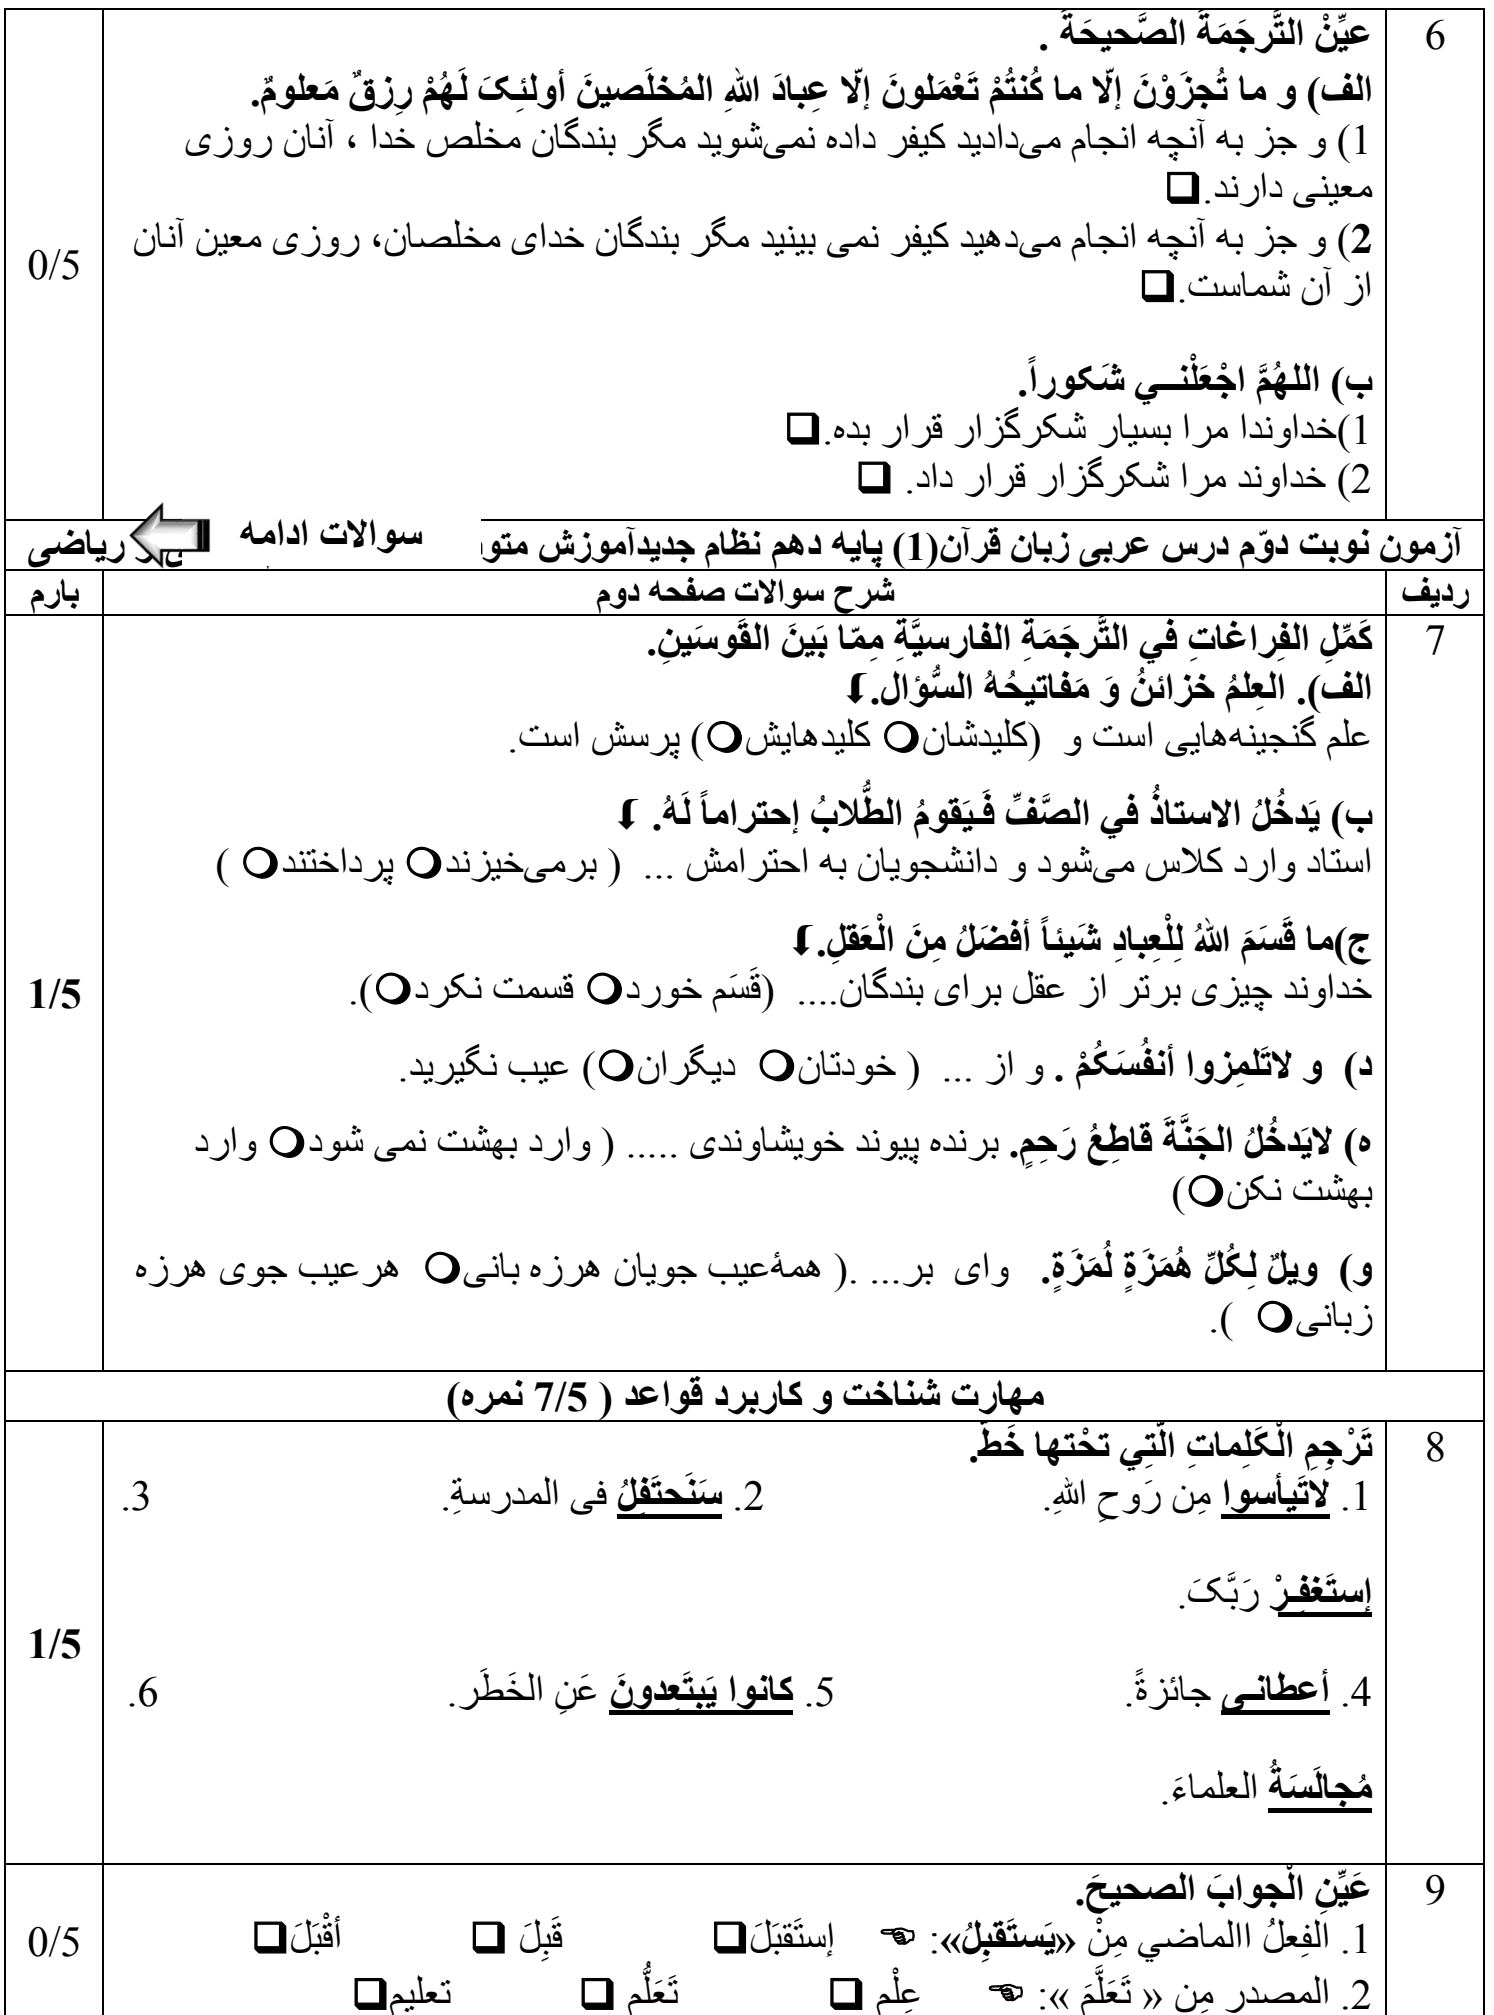 6
عيِّنْ التَّرجَمَةَ الصَّحيحَةَ .
الف) و ما تُجزَوْنَ إلّا ما كُنتُمْ تَعْمَلونَ إلّا عِبادَ اللهِ المُخلَصينَ أولئِکَ لَهُمْ رِزقٌ مَعلومٌ.
1) و جز به آنچه انجام می‌دادید کیفر داده نمی‌شوید مگر بندگان مخلص خدا ، آنان روزی
معینی دارند.❑
2) و جز به آنچه انجام می‌دهید کیفر نمی بینید مگر بندگان خدای مخلصان، روزی معین آنان
از آن شماست.❑
0/5
ب) اللهُمَّ اجْعَلْنــي شَكوراً.
1)خداوندا مرا بسیار شکرگزار قرار بده.❑
2) خداوند مرا شکرگزار قرار داد. ❑
سوالات ادامه
آزمون نوبت دوّم درس عربی زبان قرآن(1) پایه دهم نظام جدیدآموزش متو ریاضی
ردیف شرح سوالات صفحه دوم بارم
7
كَمِّلِ الفِراغاتِ في التَّرجَمَةِ الفارسيَّةِ مِمّا بَينَ القَوسَينِ.
الف). العِلمُ خزائنُ وَ مَفاتيحُهُ السُّؤال.
علم گنجینه‌هایی است و (کلیدشان❍ کلیدهایش❍) پرسش است.
ب) يَدخُلُ الاستاذُ في الصَّفِّ فَـيَقومُ الطُّلابُ إحتراماً لَهُ.
استاد وارد کلاس می‌شود و دانشجویان به احترامش ... ( برمی‌خیزند❍ پرداختند❍ )
ج)ما قَسَمَ اللهُ لِلْعِبادِ شَيئاً أفضَلُ مِنَ الْعَقلِ.
خداوند چیزی برتر از عقل برای بندگان.... (قَسَم خورد❍ قسمت نکرد❍).
1/5
د) و لاتَلمِزوا أنفُسَكُمْ . و از ... ( خودتان❍ دیگران❍) عیب نگیرید.
ه) لايَدخُلُ الجَنَّةَ قاطِعُ رَحِمٍ. برنده پیوند خویشاوندی ..... ( وارد بهشت نمی شود❍ وارد
بهشت نکن❍)
و) ويلٌ لِكُلِّ هُمَزَةٍ لُمَزَةٍ. وای بر... .( همهٔعیب جویان هرزه بانی❍ هرعیب جوی هرزه
زبانی❍ ).
مهارت شناخت و کاربرد قواعد ( 7/5 نمره)
8
تَرْجِمِ الْكَلِماتِ الَّتِي تحْتها خَطّ.
1. لاتَيأسوا مِن رَوحِ اللهِ. 2. سَنَحتَفِلُ فى المدرسةِ. 3.
إستَغفِـرْ رَبَّکَ.
1/5
4. أعطانــى جائزةً. 5. كانوا يَبتَعِدونَ عَنِ الخَطَر. 6.
مُجالَسَةُ العلماءَ.
9
عَيِّنِ الْجوابَ الصحيحَ.
0/5
1. الفِعلُ االماضي مِنْ «يَستَقبِلُ»: ☜ إستَقبَلَ❑ قَبِلَ ❑ أقْبَلَ❑
2. المصدر مِن « تَعَلَّمَ »: ☜ عِلْم ❑ تَعَلُّم ❑ تعليم❑